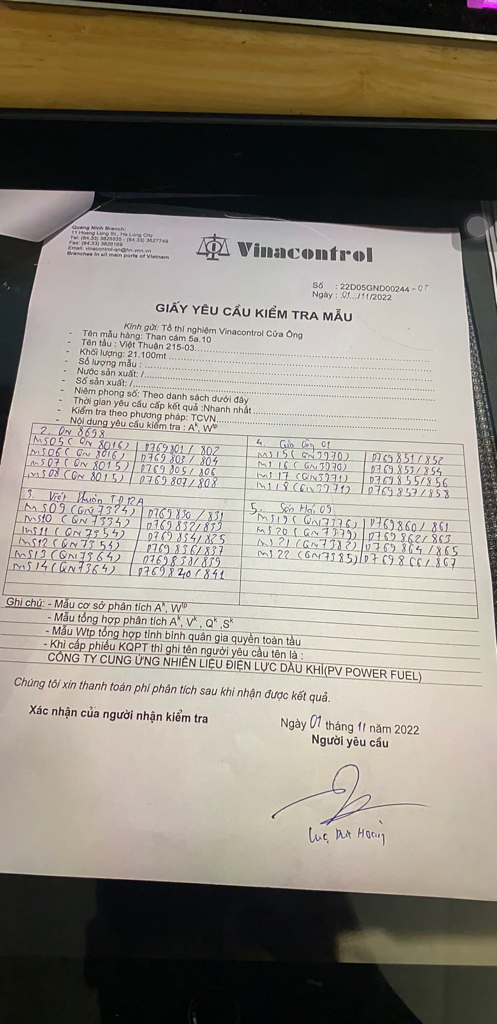 Quang Ninh Branch:
11 Hoang Long St., Ha Long City
Tel: (84.33) 3825535 - (84.33) 3627749
Fax: (84.33) 3826169
Email: vinacontrol-qn@hn.vnn.vn
Branches in all main parts of Vietnam
Vinacontrol
Số : 22D05GND00244 - 07
Ngày : 01.../11/2022
GIẤY YÊU CẦU KIỂM TRA MẪU
Kính gửi: Tổ thí nghiệm Vinacontrol Cửa Ông
- Tên mẫu hàng: Than cám 5a.10
- Tên tàu : Việt Thuận 215-03
- Khối lượng: 21.100mt
- Số lượng mẫu :
- Nước sản xuất: /
- Số sản xuất: /
- Niêm phong số: Theo danh sách dưới đây
- Thời gian yêu cầu cấp kết quả :Nhanh nhất
- Kiểm tra theo phương pháp: TCVN
- Nội dung yêu cầu kiểm tra : Aᵏ, Wᵗᵖ
2. QN 8698
MS05 ( QN 8016) 0769801 / 802
MS06 ( QN 8016) 0769803 / 804
MS07 ( QN 8015) 0769805 / 806
MS08 ( QN 8015) 0769807 / 808
3. Việt Thuận
MS09 (QN 7324) 0769830 / 831
MS10 (QN 7334) 0769832/833
MS11 (QN 7354) 0769834/825
MS12 (QN 7354) 0769836/837
MS13 (QN 7364) 0769838/839
MS14 (QN 7364) 0769840/841
4.
MS15 (QN 3970) 0769851/852
MS16 (QN 3970) 0769853/854
MS17 (QN 3971) 0769855/856
MS18 (QN 3971) 0769857/858
5. Sơn Hải 09
MS19 (QN 7376) 0769860 / 861
MS20 (QN 7379) 0769862/863
MS21 (QN 7382) 0769864 / 865
MS22 (QN 7385) 0769866/867
Ghi chú: - Mẫu cơ sở phân tích Aᵏ, Wᵗᵖ
- Mẫu tổng hợp phân tích Aᵏ, Vᵏ , Qᵏ ,Sᵏ
- Mẫu Wtp tổng hợp tính bình quân gia quyền toàn tàu
- Khi cấp phiếu KQPT thì ghi tên người yêu cầu tên là :
CÔNG TY CUNG ỨNG NHIÊN LIỆU ĐIỆN LỰC DẦU KHÍ(PV POWER FUEL)
Chúng tôi xin thanh toán phí phân tích sau khi nhận được kết quả.
Xác nhận của người nhận kiểm tra
Ngày 01 tháng 11 năm 2022
Người yêu cầu